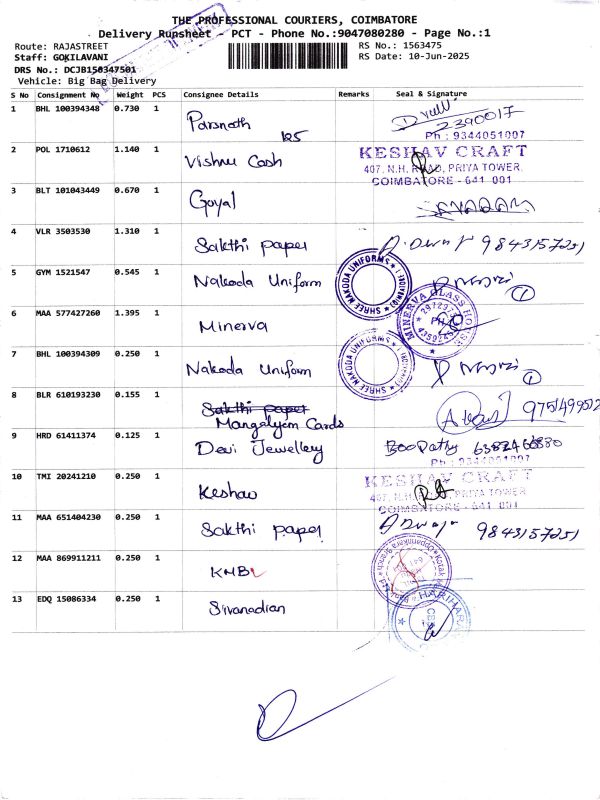 THE PROFESSIONAL COURIERS, COIMBATORE
Delivery Runsheet - PCT - Phone No.:9047080280 - Page No.:1
Route: RAJASTREET
RS No.: 1563475
Staff: GOKILAVANI
RS Date: 10-Jun-2025
DRS No.: DCJB150347501
Vehicle: Big Bag Delivery
S No Consignment No Weight PCS Consignee Details Remarks Seal & Signature
1 BHL 100394348 0.730 1 Parsnath 125
2390017
Ph : 9344051007
2 POL 1710612 1.140 1 Vishnu Cash
KESHAV CRAFT
407, N.H. ROAD, PRIYA TOWER,
COIMBATORE - 641 001
3 BLT 101043449 0.670 1 Goyal
4 VLR 3503530 1.310 1 Sakthi paper 9843157251
5 GYM 1521547 0.545 1 Nakoda Uniform
SHREE NAKODA UNIFORMS
6 MAA 577427260 1.395 1 Minerva
MINERVA GLASS HOUSE
7 BHL 100394309 0.250 1 Nakoda Uniform
SHREE NAKODA UNIFORMS
8 BLR 610193230 0.155 1 Sakthi paper
Mangalyam Cards
9 HRD 61411374 0.125 1 Devi Jewellery Boopathy
10 TMI 20241210 0.250 1 Keshav
KESHAV CRAFT
407, N.H. PRIYA TOWER
11 MAA 651404230 0.250 1 Sakthi paper 9843157251
12 MAA 869911211 0.250 1 KMBL
13 EDQ 15086334 0.250 1 Sivanadian